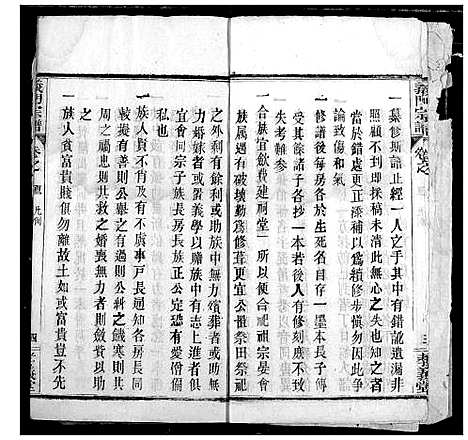 義門宗譜
卷之
一墓修斯譜止經一人之手其中有錯認遺漏非
照顧不到即採稿未清此無心之失也知之者
當於錯處更正漆補以為續修步愼勿因此爭
論致傷和氣
一修譜後每房各於生死名目存一墨本長子傳
其後餘諸子各抄一本若後人有修刻庶不致
失考難參
一合族宜歛費建祠堂一所以便合祀祖宗晏會
族属遇有毀壞勤修葺更宜公積祭田祭祀
三義堂
之外利有餘利或助族中無力殯葬者或出有
力婚娶者或置義學以贍族中有志上進者俱
宜會同宗子族長房長族正公定恐從爭奪儕
私也
一族人貴不肖及有不虞事戸長通知各房長同
接擬有善則公奬之有過則公糾之饑寒則共
周之禍患則共救之婚喪無力者則斂費以助
之
一族人貧富貴賤俱勿離故土如或富貴豈不先
義門宗譜
卷之
凡例
四